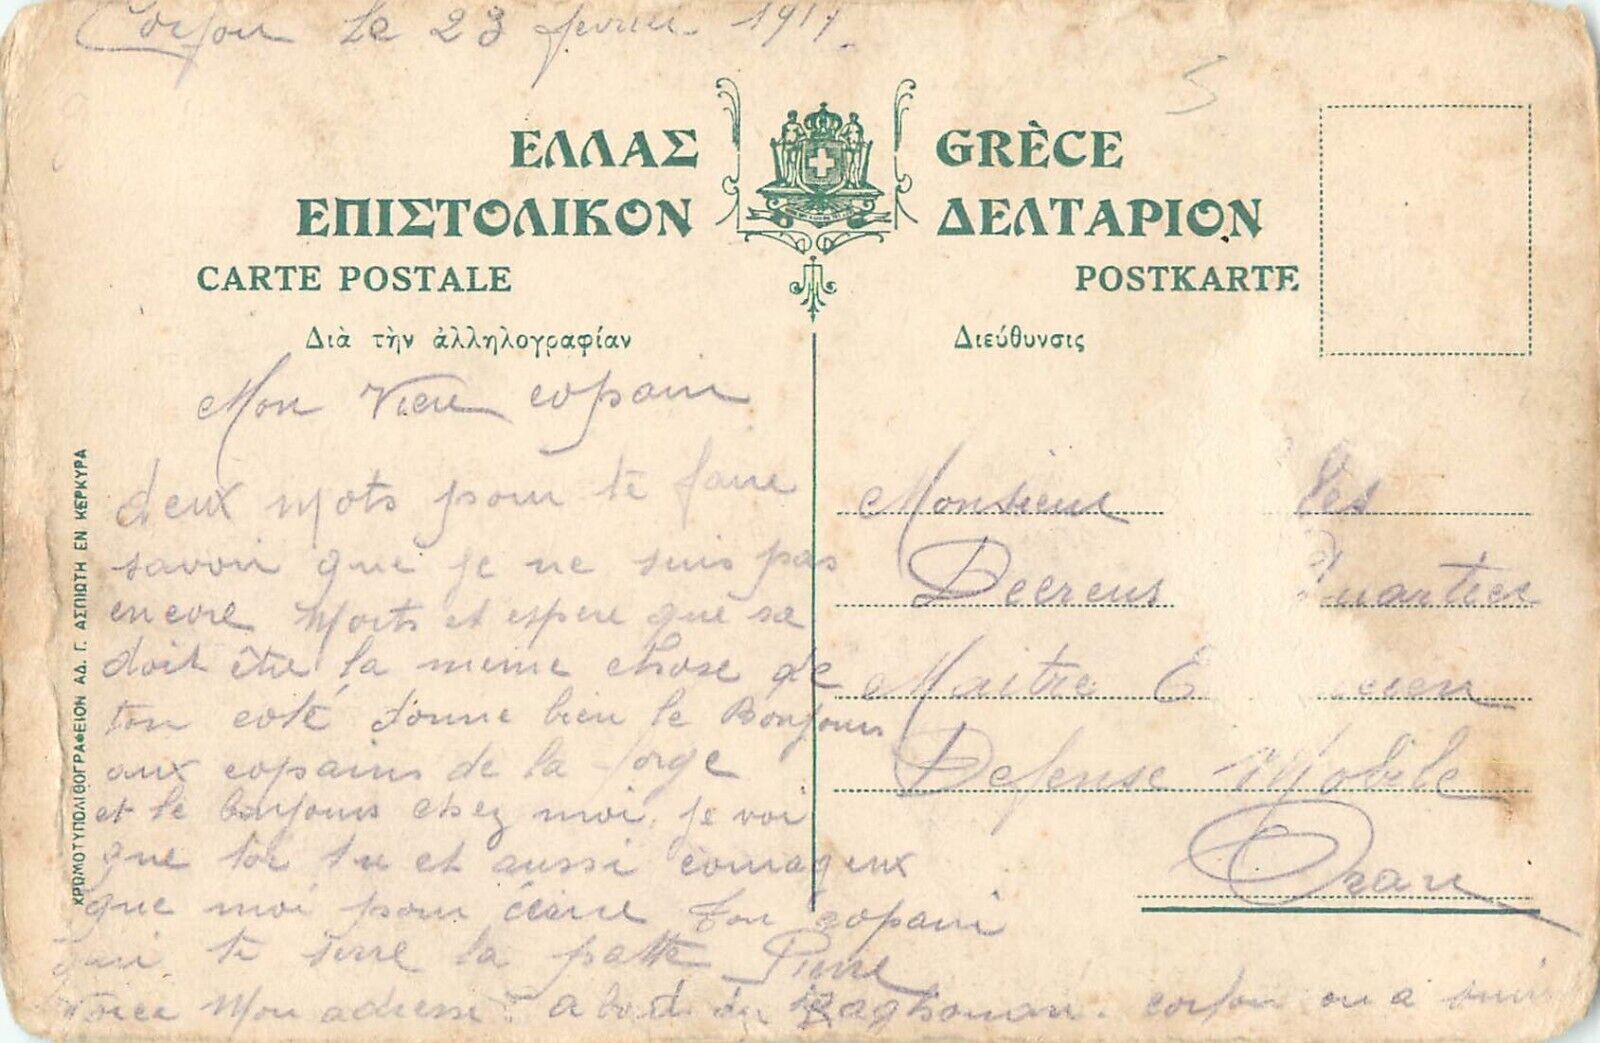 Corfou le 23 fevrier 1917.
5
ΕΛΛΑΣ GRÈCE
ΕΠΙΣΤΟΛΙΚΟΝ ΔΕΛΤΑΡΙΟΝ
CARTE POSTALE POSTKARTE
Διὰ τὴν ἀλληλογραφίαν
Διεύθυνσις
ΧΡΩΜΟΤΥΠΟΛΙΘΟΓΡΑΦΕΙΟΝ ΑΔ. Γ. ΑΣΠΙΩΤΗ ΕΝ ΚΕΡΚΥΡΑ
Mon Vieu copain
deux mots pour te faire
savoir que je ne suis pas
encore morts et espere que sa
doit être la meme chose de
ton coté donne bien le Bonjour
aux copains de la forge
et le bonjours chez moi. je voi
que toi tu et aussi courageux
que moi pour écrire ton copain
qui te serre la patte Pierre
Voice Mon adresse a bord du corfou ou a suivre
Monsieur
Decreus
Maitre
Defense Mobile
Oran
les
Quartier